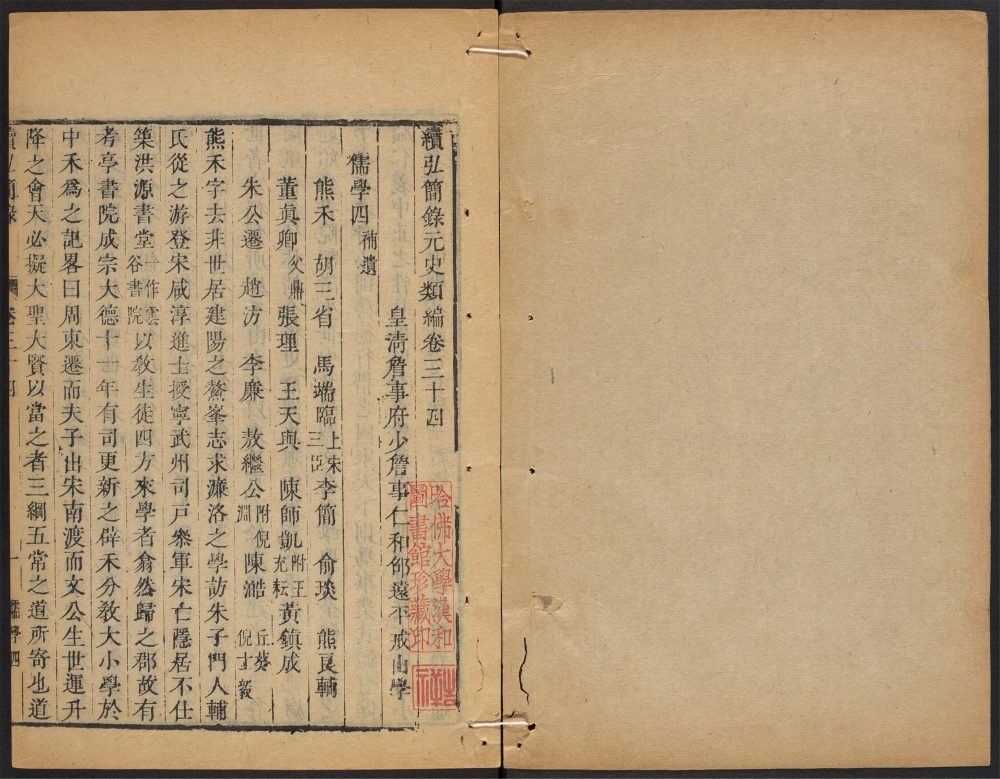 續弘簡錄元史類編卷三十四
皇清詹事府少詹事仁和邵遠平戒山學
儒學四補遺
熊禾 胡三省 馬端臨 上朱三亞 李簡 俞琰 熊良輔
董眞卿 父鼎 張理 王天與 陳師凱 附王充耘 黃鎮成
朱公遷 趙汸 李廉 敖繼公 附倪淵 陳澔 丘葵 倪士毅
熊禾字去非世居建陽之鰲峯志求濂洛之學訪朱子門人輔
氏從之游登宋咸淳進士授寧武州司戶叅軍宋亡隱居不仕
築洪源書堂一作雲谷書院以敎生徒四方來學者翕然歸之郡故有
考亭書院成宗大德十世年有司更新之辟禾分敎大小學於
中禾爲之記畧曰周東遷而夫子出宋南渡而文公生世運升
降之會天必擬大聖大賢以當之者三綱五常之道所寄也道
續弘簡錄 卷三十四 一 儒學四
哈佛大學漢和
圖書館珍藏印